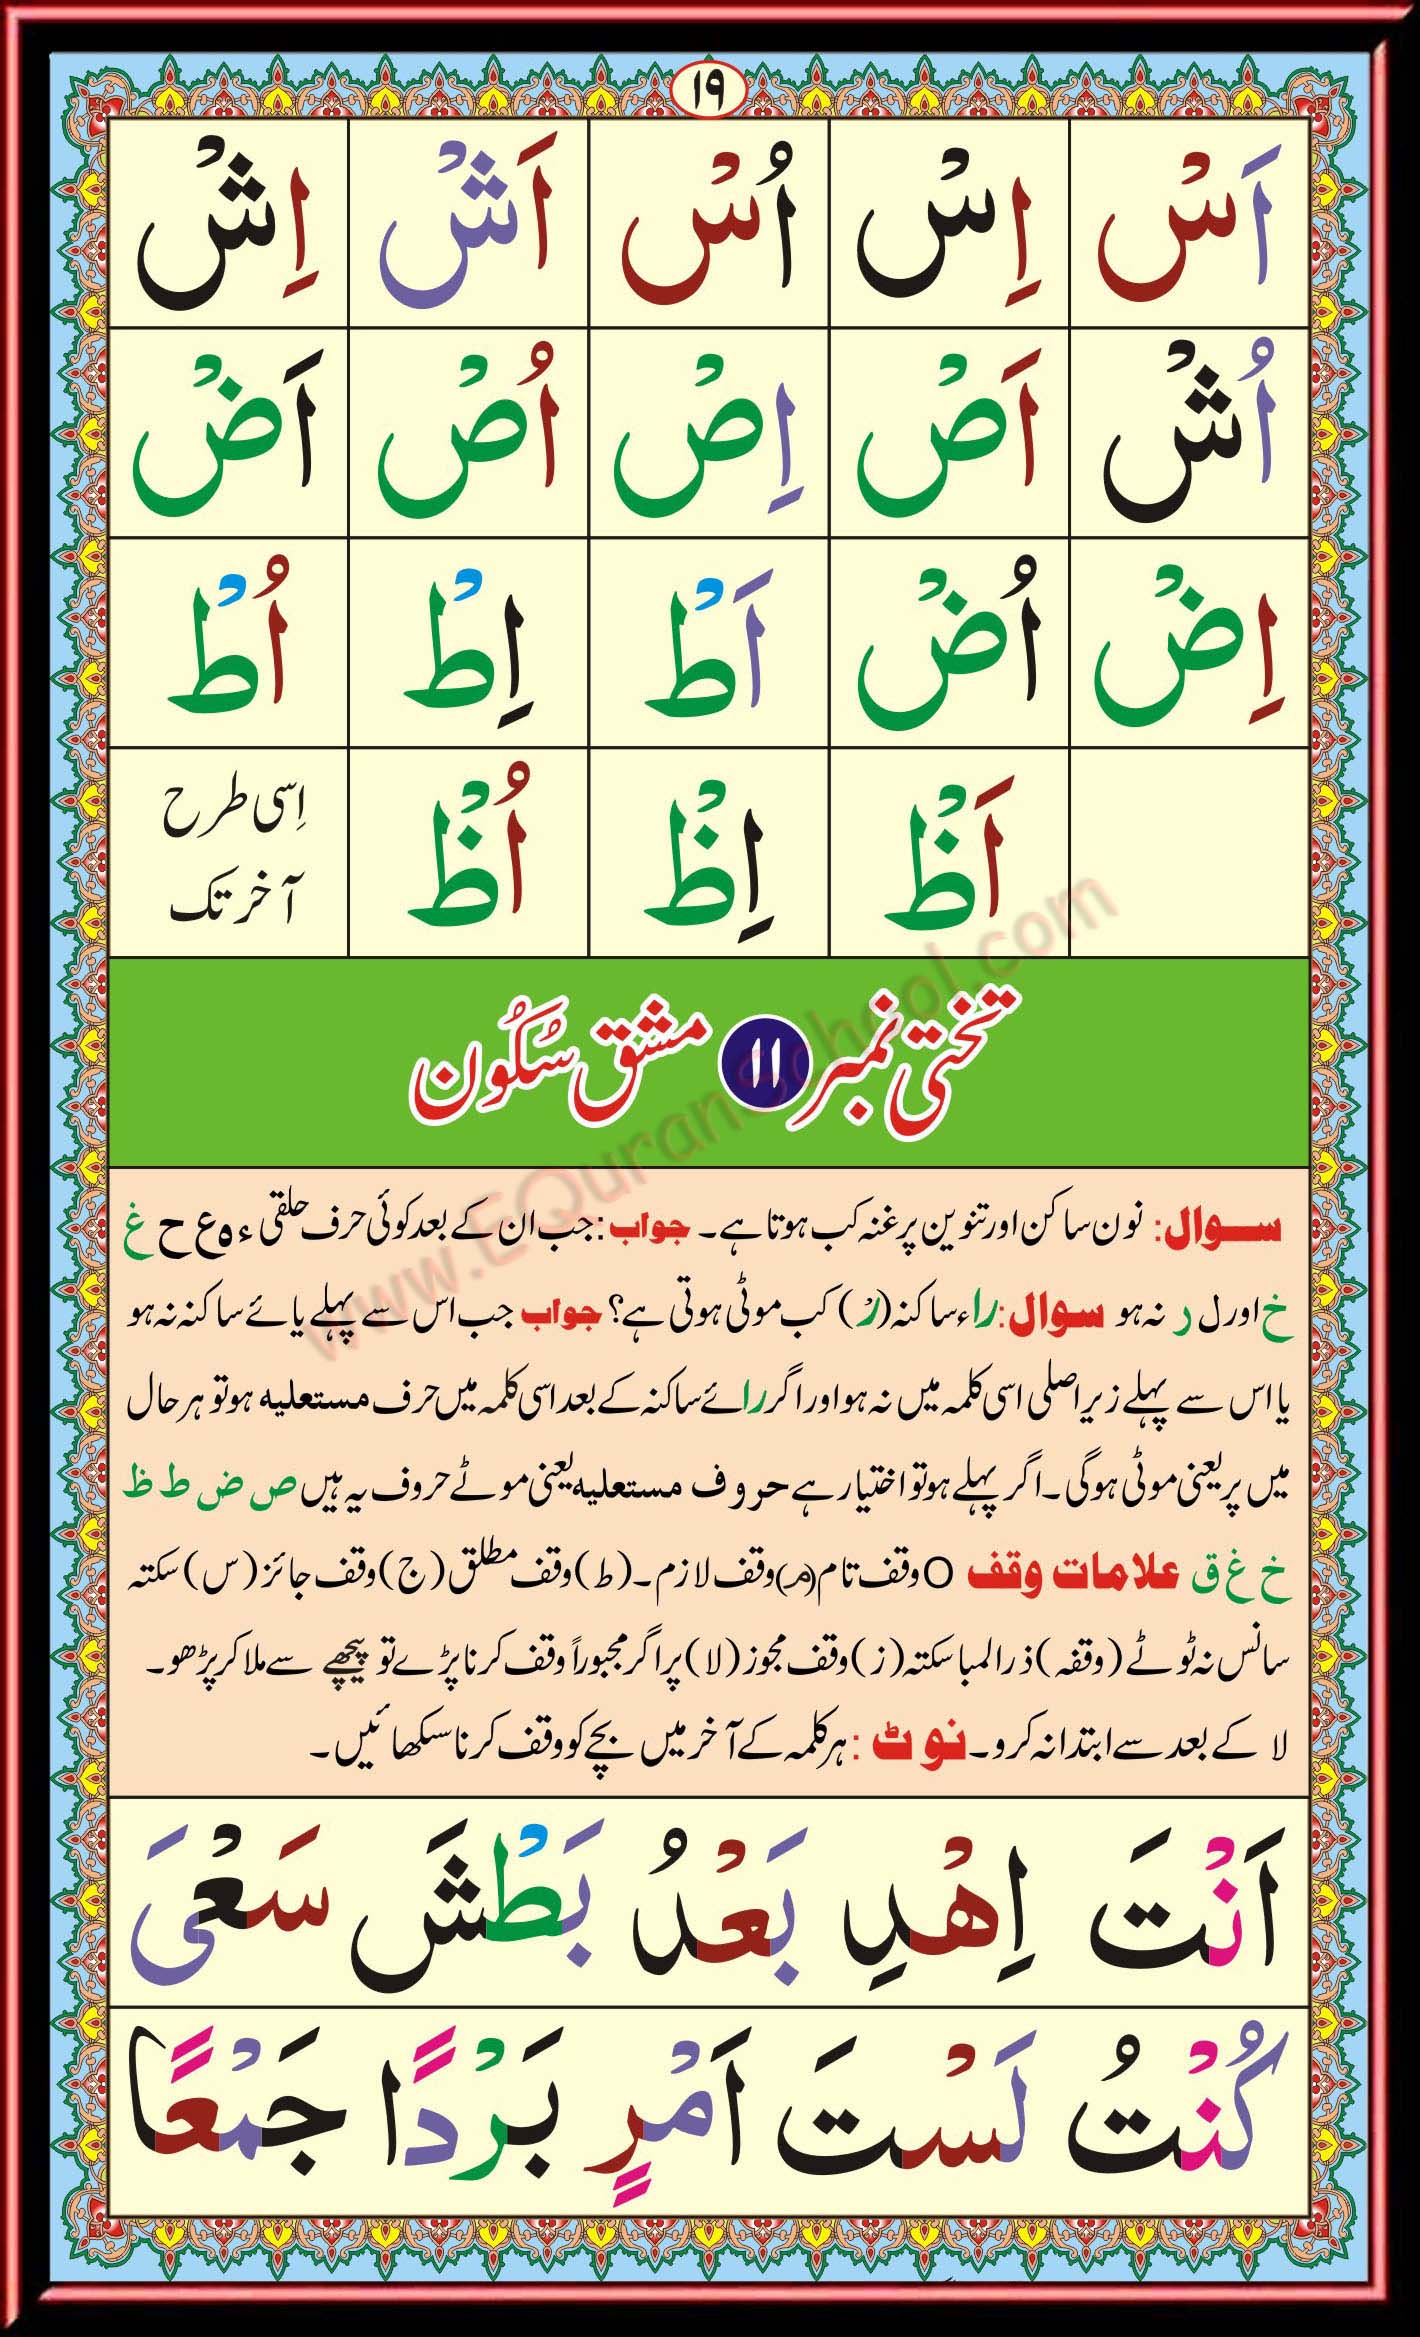 ۱۹
اَسْ اِسْ اُسْ اَشْ اِشْ
اُشْ اَصْ اِصْ اُصْ اَضْ
اِضْ اُضْ اَطْ اِطْ اُطْ
اَظْ اِظْ اُظْ اِسی طرح آخر تک
تختی نمبر ۱۱ مشق سُکُون
سوال: نون ساکن اور تنوین پر غنہ کب ہوتا ہے۔ جواب: جب ان کے بعد کوئی حرف حلقی ء ہ ع ح غ
خ اور ل ر نہ ہو سوال: راء ساکنہ (رْ) کب موٹی ہوتی ہے؟ جواب جب اس سے پہلے یائے ساکنہ نہ ہو
یا اس سے پہلے زیر اصلی اسی کلمہ میں نہ ہو اور اگر رائے ساکنہ کے بعد اسی کلمہ میں حرف مستعلیہ ہو تو ہر حال
میں پر یعنی موٹی ہوگی۔ اگر پہلے ہو تو اختیار ہے حروف مستعلیہ یعنی موٹے حروف یہ ہیں ص ض ط ظ
خ غ ق علامات وقف O وقف تام (مـ) وقف لازم۔ (ط) وقف مطلق (ج) وقف جائز (س) سکتہ
سانس نہ ٹوٹے (وقفہ) ذرا لمبا سکتہ (ز) وقف مجوز (لا) پر اگر مجبوراً وقف کرنا پڑے تو پیچھے سے ملا کر پڑھو۔
لا کے بعد سے ابتدا نہ کرو۔ نوٹ: ہر کلمہ کے آخر میں بچے کو وقف کرنا سکھائیں۔
اَنْتَ اِهْدِ بَعْدُ بَطْشَ سَعْیَ
كُنْتُ لَسْتَ اَمْرٍ بَرْدًا جَمْعًا
www.EQuranSchool.com